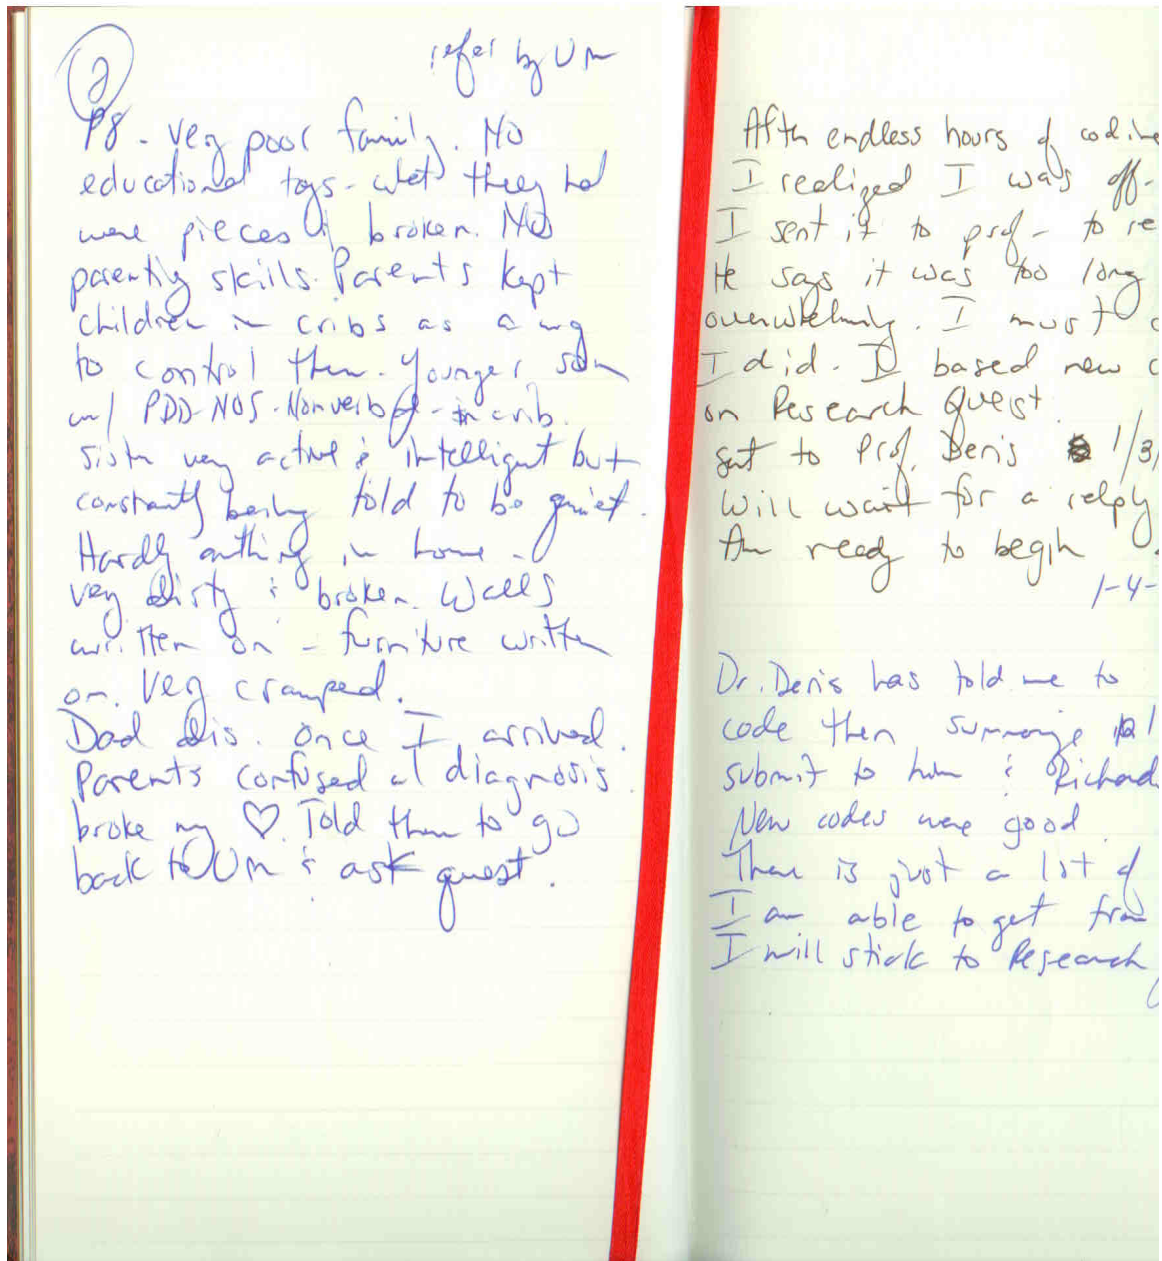 2
refer by UM
P8 - Very poor family. No
educational toys - what they had
were pieces & broken. No
parenting skills. Parents kept
children in cribs as a way
to control them. Younger son
w/ PDD-NOS - Nonverbal - in crib.
Sister very active & intelligent but
constantly being told to be quiet.
Hardly anything in home -
very dirty & broken. Walls
written on - furniture written
on. Very cramped.
Dad dis. once I arrived.
Parents confused at diagnosis.
broke my ♡. Told them to go
back to UM & ask quest.
After endless hours of coding
I realized I was off-
I sent it to prof - to re
He says it was too long
overwhelming. I must
I did. I based new c
on Research Quest.
Sent to Prof. Denis 1/3/
Will wait for a relpy
Am ready to begin
1-4-
Dr. Denis has told me to
code then summarize
submit to him & Richard
New codes were good.
There is just a lot of
I am able to get from
I will stick to Research